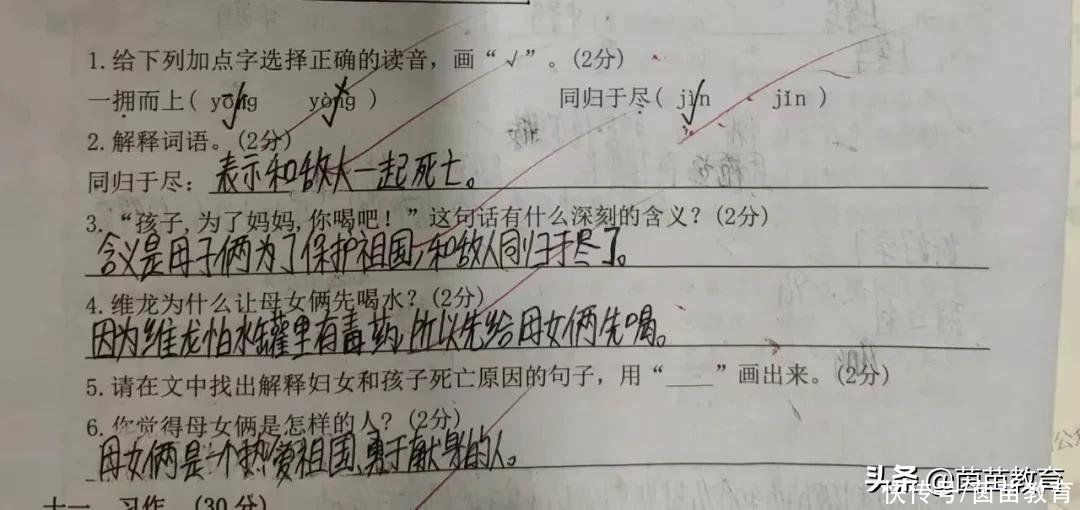 1.给下列加点字选择正确的读音，画“√”。(2分)
一拥而上( yōng yòng ) 同归于尽( jìn jǐn )
2.解释词语。(2分)
同归于尽：表示和敌人一起死亡。
3.“孩子,为了妈妈,你喝吧！”这句话有什么深刻的含义？(2分)
含义是母子俩为了保护祖国,和敌人同归于尽了。
4.维龙为什么让母女俩先喝水？(2分)
因为维龙怕水罐里有毒药,所以先给母女俩先喝。
5.请在文中找出解释妇女和孩子死亡原因的句子，用“____”画出来。(2分)
6.你觉得母女俩是怎样的人？(2分)
母女俩是一个热爱祖国,勇于献身的人。
十一、习作。(30分)
头条 @茵茵教育
快传号/茵苗教育